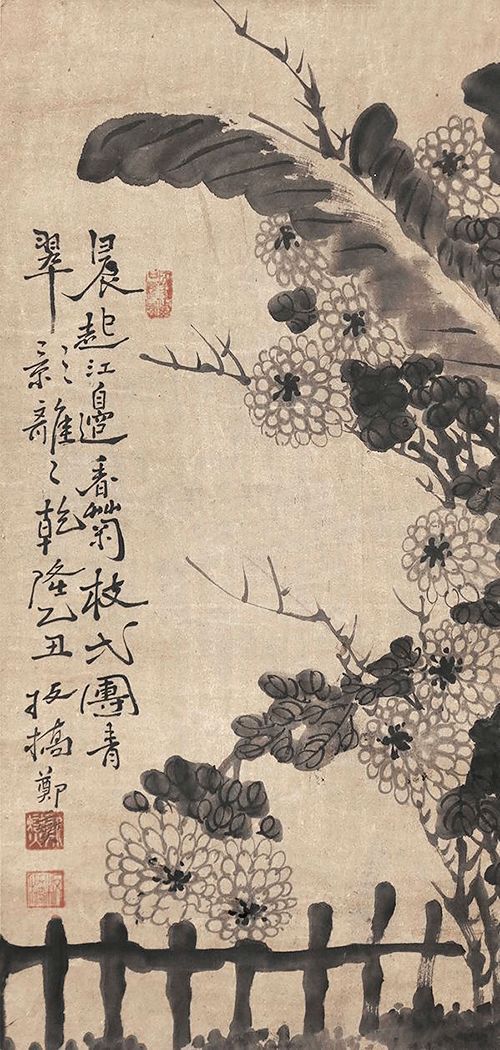 晨起江邊看菊枝弌團青
翠影離〻乾隆乙丑板橋鄭